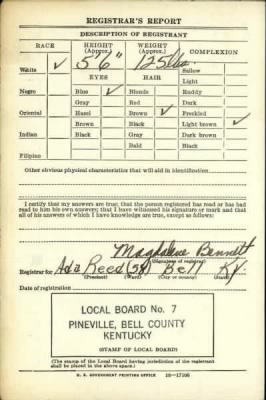 REGISTRAR'S REPORT
DESCRIPTION OF REGISTRANT
RACE HEIGHT (Approx.) WEIGHT (Approx.) COMPLEXION
White ✓ 5'6" 125 lbs. Sallow
EYES HAIR Light
Negro Blue ✓ Blonde Ruddy
Gray Red Dark
Oriental Hazel Brown ✓ Freckled
Brown Black Light brown ✓
Indian Black Gray Dark brown
Bald Black
Filipino
Other obvious physical characteristics that will aid in identification
I certify that my answers are true; that the person registered has read or has had
read to him his own answers; that I have witnessed his signature or mark and that
all of his answers of which I have knowledge are true, except as follows:
Magdalene Bennett
(Signature of registrar)
Registrar for Ada Reed (58) Bell Ky.
(Precinct) (Ward) (City or county) (State)
Date of registration
LOCAL BOARD No. 7
PINEVILLE, BELL COUNTY
KENTUCKY
(STAMP OF LOCAL BOARD)
(The stamp of the Local Board having jurisdiction of the registrant
shall be placed in the above space.)
U. S. GOVERNMENT PRINTING OFFICE 16—17105